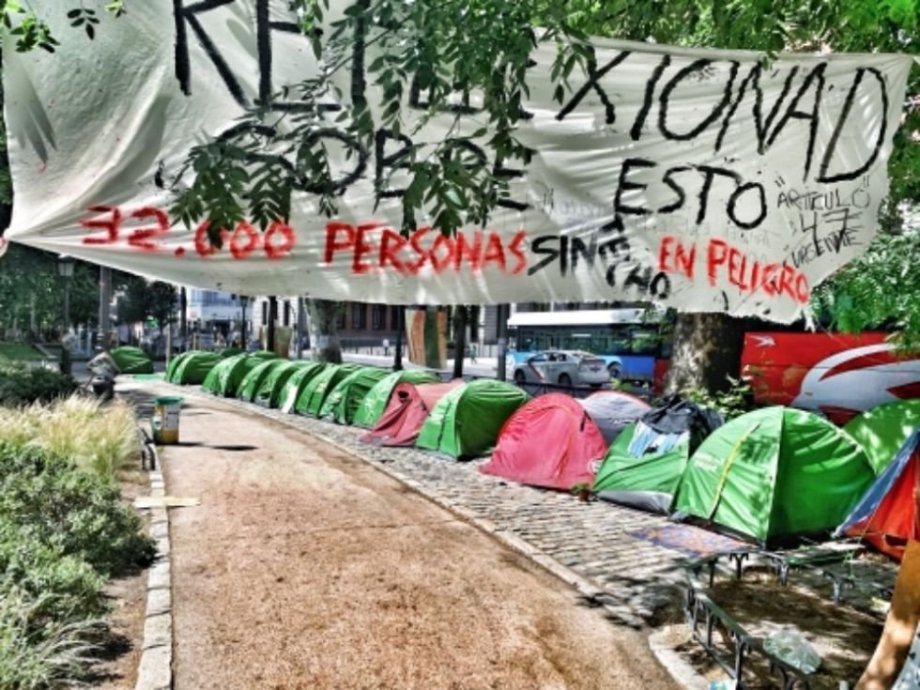 REFLEXIONAD
SOBRE ESTO
"ARTICULO
47"
URGENTE
32.000 PERSONAS SIN TECHO EN PELIGRO